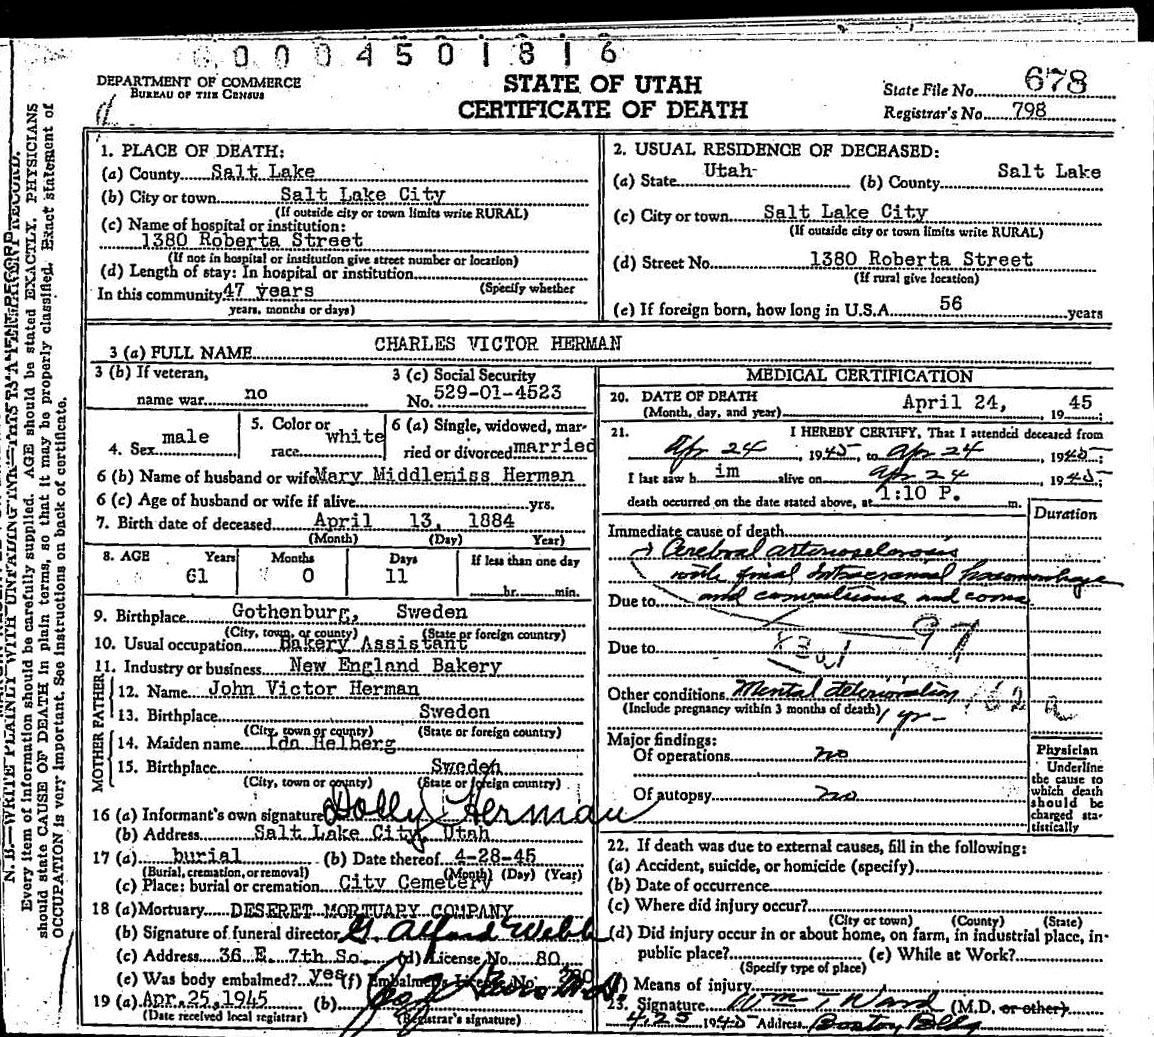 00004501816
DEPARTMENT OF COMMERCE
BUREAU OF THE CENSUS
STATE OF UTAH
CERTIFICATE OF DEATH
State File No. 678
Registrar's No. 798
Every item of information should be carefully supplied. AGE should be stated EXACTLY. PHYSICIANS
should state CAUSE OF DEATH in plain terms, so that it may be properly classified. Exact statement of
OCCUPATION is very important. See instructions on back of certificate.
1. PLACE OF DEATH:
(a) County Salt Lake
(b) City or town Salt Lake City
(If outside city or town limits write RURAL)
(c) Name of hospital or institution:
1380 Roberta Street
(If not in hospital or institution give street number or location)
(d) Length of stay: In hospital or institution
(Specify whether
In this community 47 years
years, months or days)
2. USUAL RESIDENCE OF DECEASED:
(a) State Utah (b) County Salt Lake
(c) City or town Salt Lake City
(If outside city or town limits write RURAL)
(d) Street No. 1380 Roberta Street
(If rural give location)
(e) If foreign born, how long in U.S.A. 56 years
3 (a) FULL NAME CHARLES VICTOR HERMAN
3 (b) If veteran,
name war no
3 (c) Social Security
No. 529-01-4523
4. Sex male
5. Color or
race white
6 (a) Single, widowed, mar-
ried or divorced married
6 (b) Name of husband or wife Mary Middlemiss Herman
6 (c) Age of husband or wife if alive yrs.
7. Birth date of deceased April 13, 1884
(Month) (Day) Year)
8. AGE Years Months Days If less than one day
61 0 11 hr. min.
9. Birthplace Gothenburg, Sweden
(City, town, or county) (State or foreign country)
10. Usual occupation Bakery Assistant
11. Industry or business New England Bakery
FATHER
12. Name John Victor Herman
13. Birthplace Sweden
(City, town or county) (State or foreign country)
MOTHER
14. Maiden name Ida Helberg
15. Birthplace Sweden
(City, town or county) (State or foreign country)
16 (a) Informant's own signature Dolly Herman
(b) Address Salt Lake City, Utah
17 (a) burial (b) Date thereof 4-28-45
(Burial, cremation, or removal) (Month) (Day) (Year)
(c) Place: burial or cremation City Cemetery
18 (a) Mortuary DESERET MORTUARY COMPANY
(b) Signature of funeral director G. Alford Webb
(c) Address 36 E. 7th So. (d) License No. 80
(e) Was body embalmed? yes (f) Embalmer's License No.
19 (a) Apr. 25, 1945 (b)
(Date received local registrar) (Registrar's signature)
MEDICAL CERTIFICATION
20. DATE OF DEATH
(Month, day, and year) April 24, 1945;
21. I HEREBY CERTIFY, That I attended deceased from
Apr 24, 1945, to Apr 24, 1945;
I last saw h im alive on Apr 24, 1945;
death occurred on the date stated above, at 1:10 P. m.
Duration
Immediate cause of death
Cerebral arteriosclerosis
with final intracranial haemorrhage
Due to and convulsions and coma
97
Due to 83a1
Other conditions Mental deterioration 162a
(Include pregnancy within 3 months of death) 1 yr-
Major findings:
Of operations no
Of autopsy no
Physician
Underline
the cause to
which death
should be
charged sta-
tistically
22. If death was due to external causes, fill in the following:
(a) Accident, suicide, or homicide (specify)
(b) Date of occurrence
(c) Where did injury occur?
(City or town) (County) (State)
(d) Did injury occur in or about home, on farm, in industrial place, in
public place? (e) While at Work?
(Specify type of place)
(f) Means of injury
23. Signature Wm T Ward (M.D. or other)
4.25 1945 Address Boston Bldg